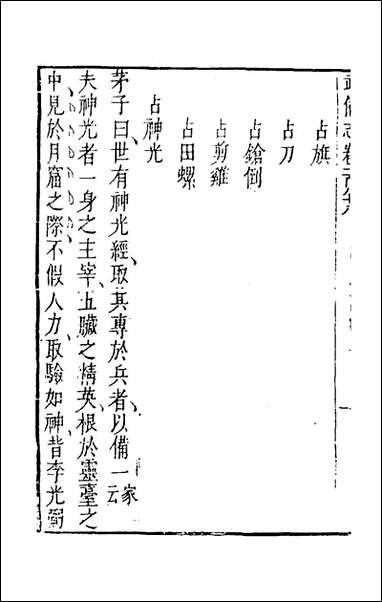 武備志卷一百
占旗
占刀
占鎗倒
占剪雞
占田螺
占神光
茅子曰世有神光經取其專於兵者以備一家云
夫神光者一身之主宰五臟之精英根於靈臺之
中見於月窟之際不假人力取驗如神昔李光弼